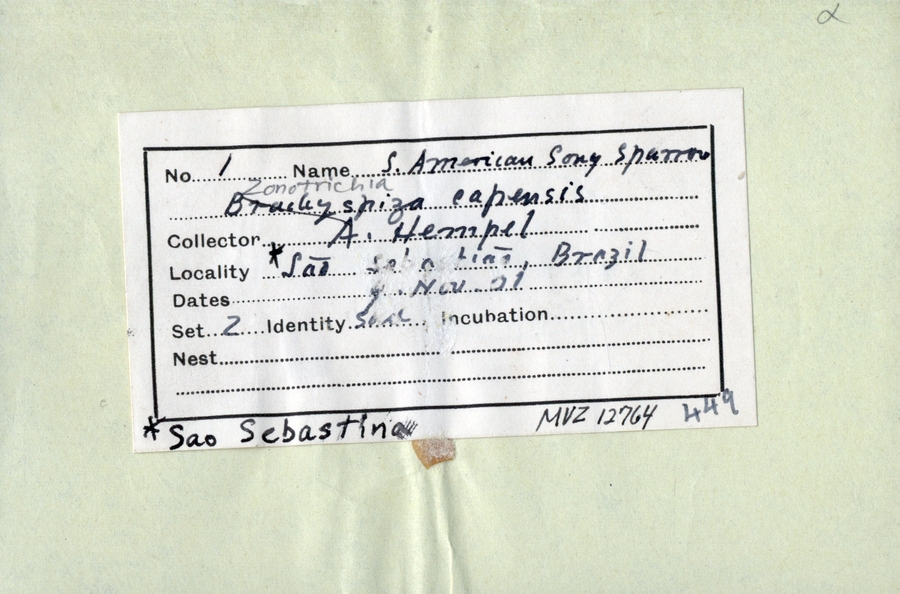 α
No. 1 Name S. American Song Sparrow
Zonotrichia
Brachyspiza capensis
Collector A. Hempel
Locality *São Sebastião, Brazil
Dates Nov.
Set 2 Identity Incubation
Nest
* Sao Sebastina
MVZ 12764 449